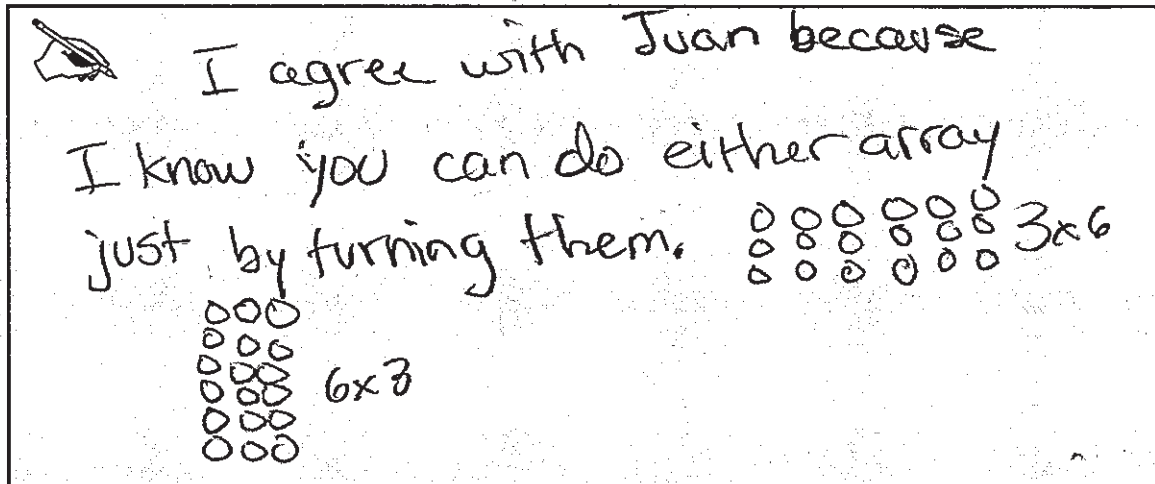 I agree with Juan because
I know you can do either array
just by turning them.
3x6
6x3